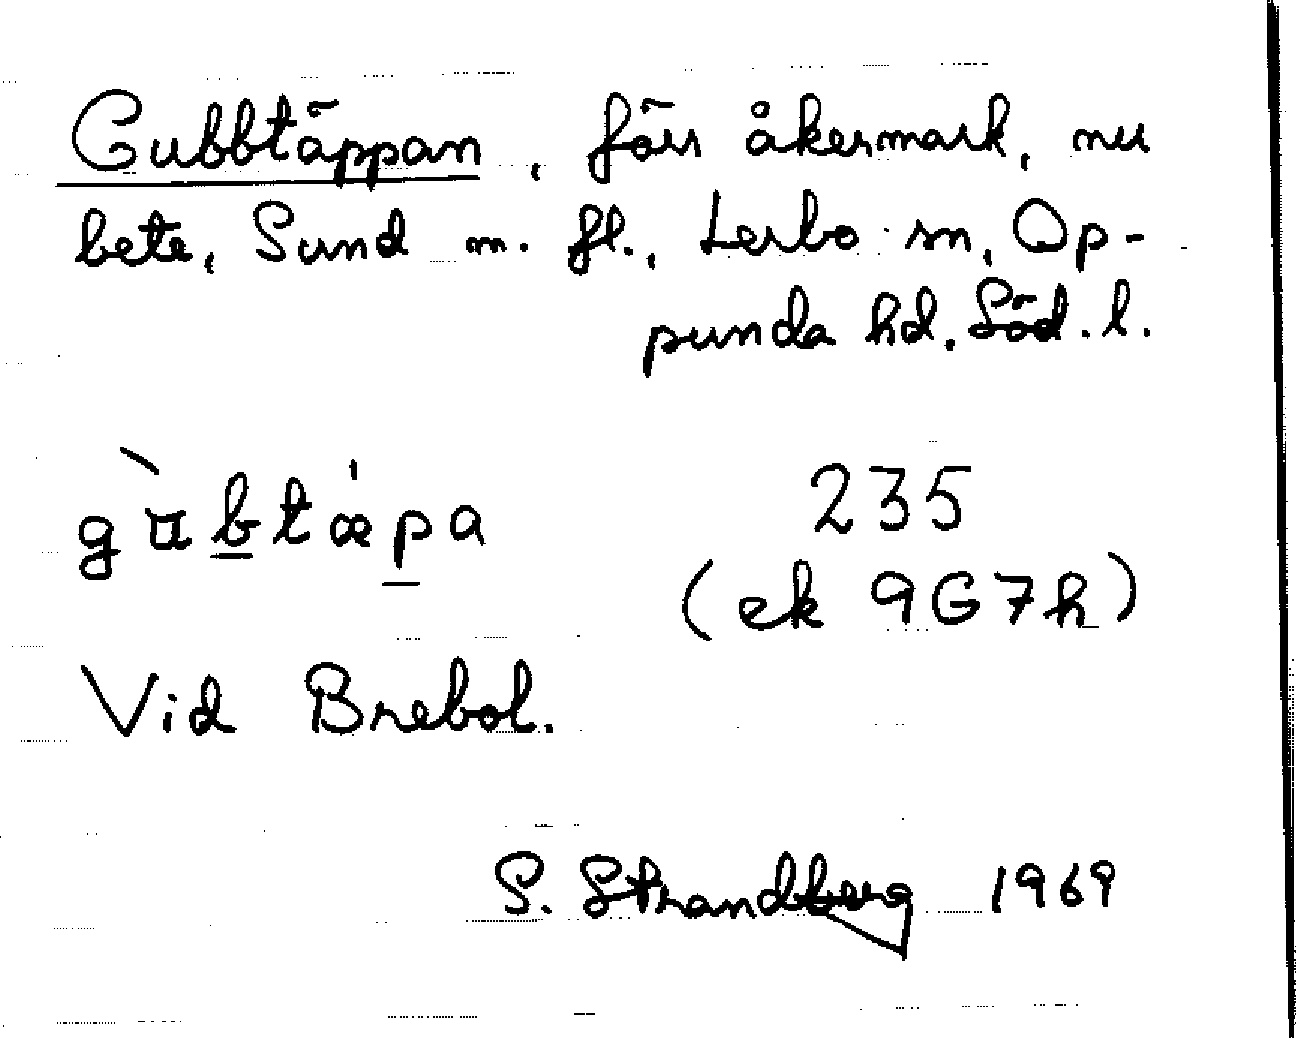 Gubbtäppan, förr åkermark, nu
bete, Sund m. fl., Lerbo sn, Op-
punda hd. Söd. l.
gùbtæpa
235
(ek 9G7h)
Vid Brebol.
S. Strandberg 1969